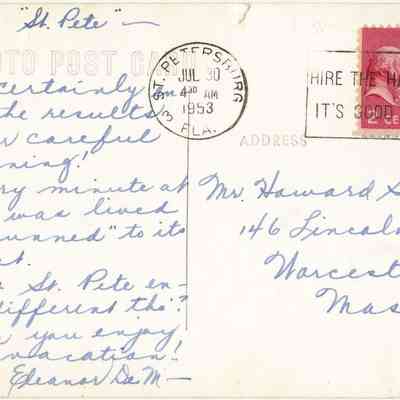 "St. Pete" —
OTO POST CARD
certainly
the results
careful
ning!
ry minute at
was lived
unned" to its
t.
St. Pete en-
different tho?
you enjoy
vacation!
Eleanor De M —
ST. PETERSBURG
JUL 30
4 30 AM
1953
FLA.
3
HIRE THE HA
IT'S GOOD
2¢
ADDRESS
Mr. Howard S
146 Lincoln
Worcest
Mas